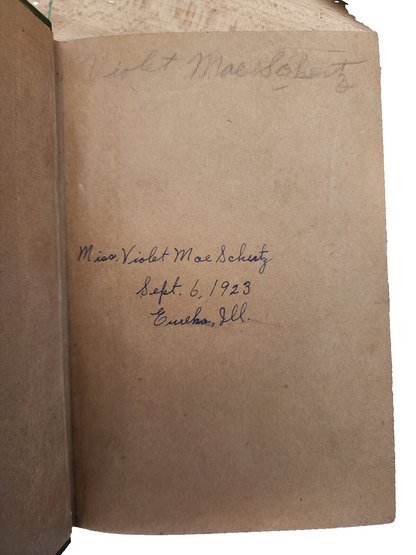 Violet Mae Schertz
Miss. Violet Mae Schertz
Sept. 6, 1923
Eureka, Ill.